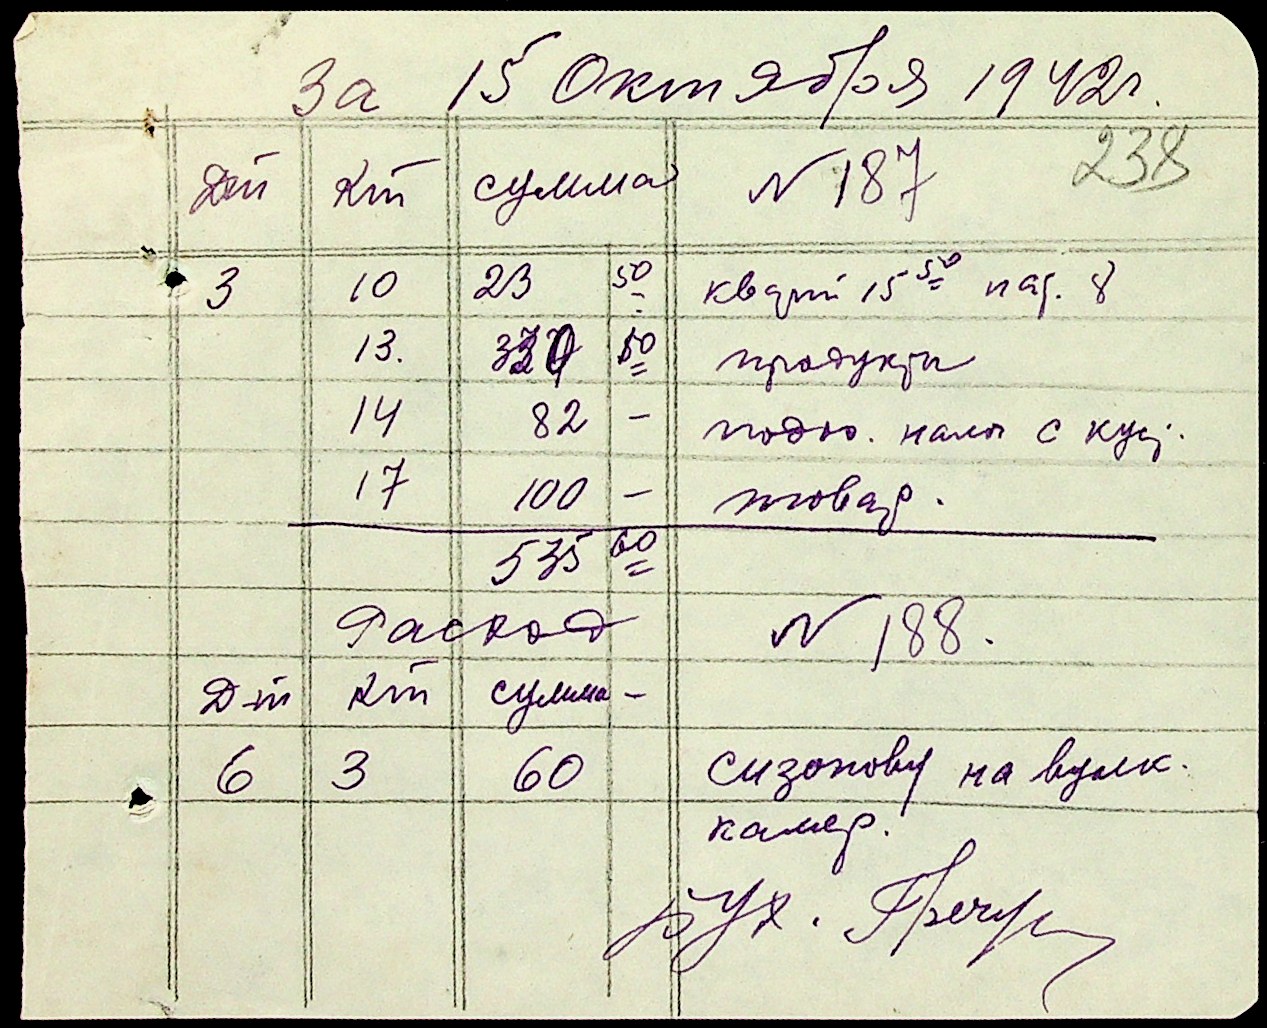 За 15 Октября 1942г.
238
Дт Кт сумма N 187
3 10 23 50 кварт 15 50 пат. 8
13. 50 продукты
14 82 - подох. налог с куст.
17 100 - товар.
535 60
Расход N 188.
Дт Кт сумма -
6 3 60 сизонову на вулк.
камер.
Бух.